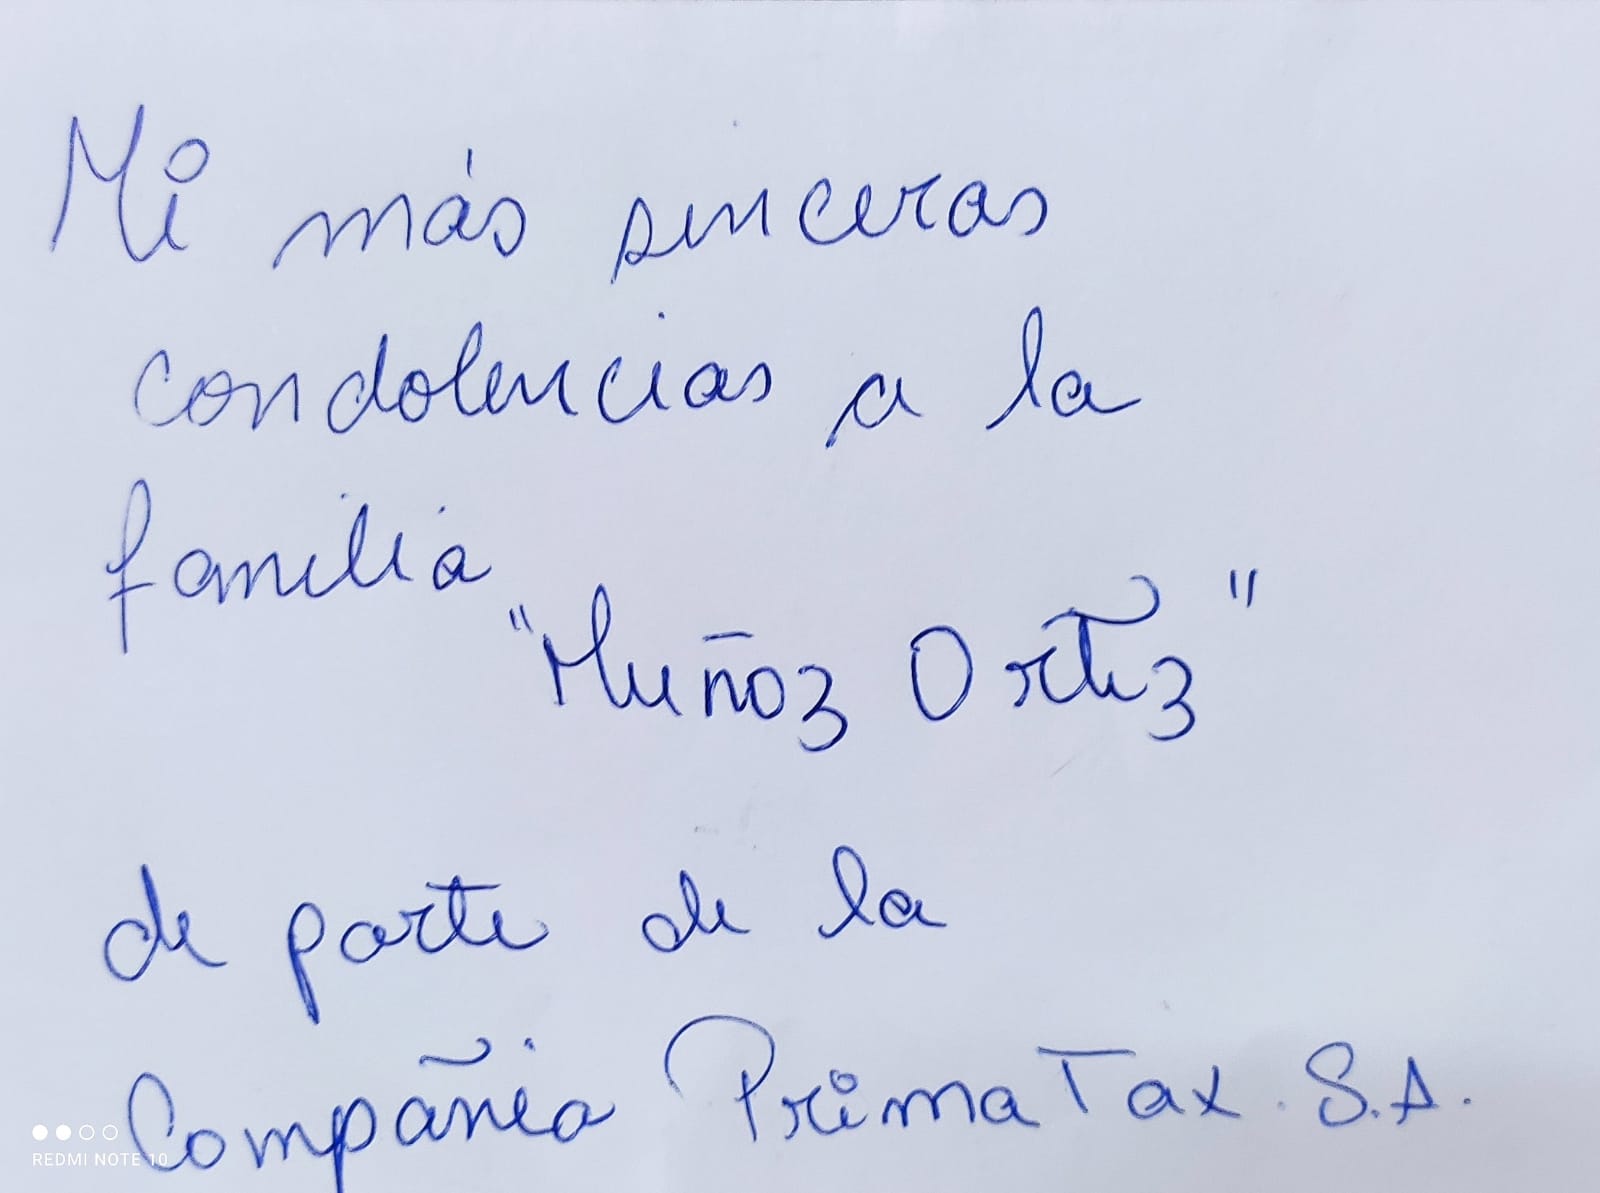 Mi más sinceras
condolencias a la
familia
"Muñoz Ortiz"
de parte de la
Compañia PrimaTax. S.A.
REDMI NOTE 10